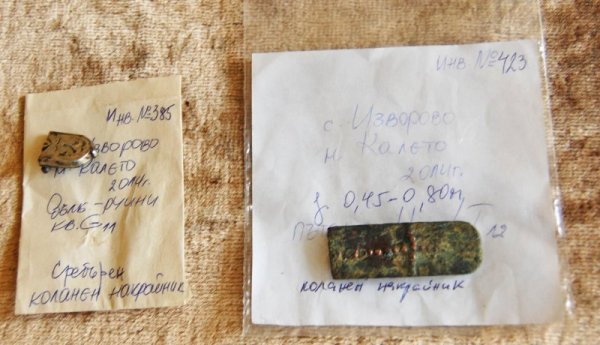 Инв. №385
Изворово
м. Калето
2014г.
Дълб.-руини
кв. G11
Сребърен
коланен накрайник
Инв №423
с. Изворово
м. Калето
2014г.
0,45-0,80m
12
коланен накрайник